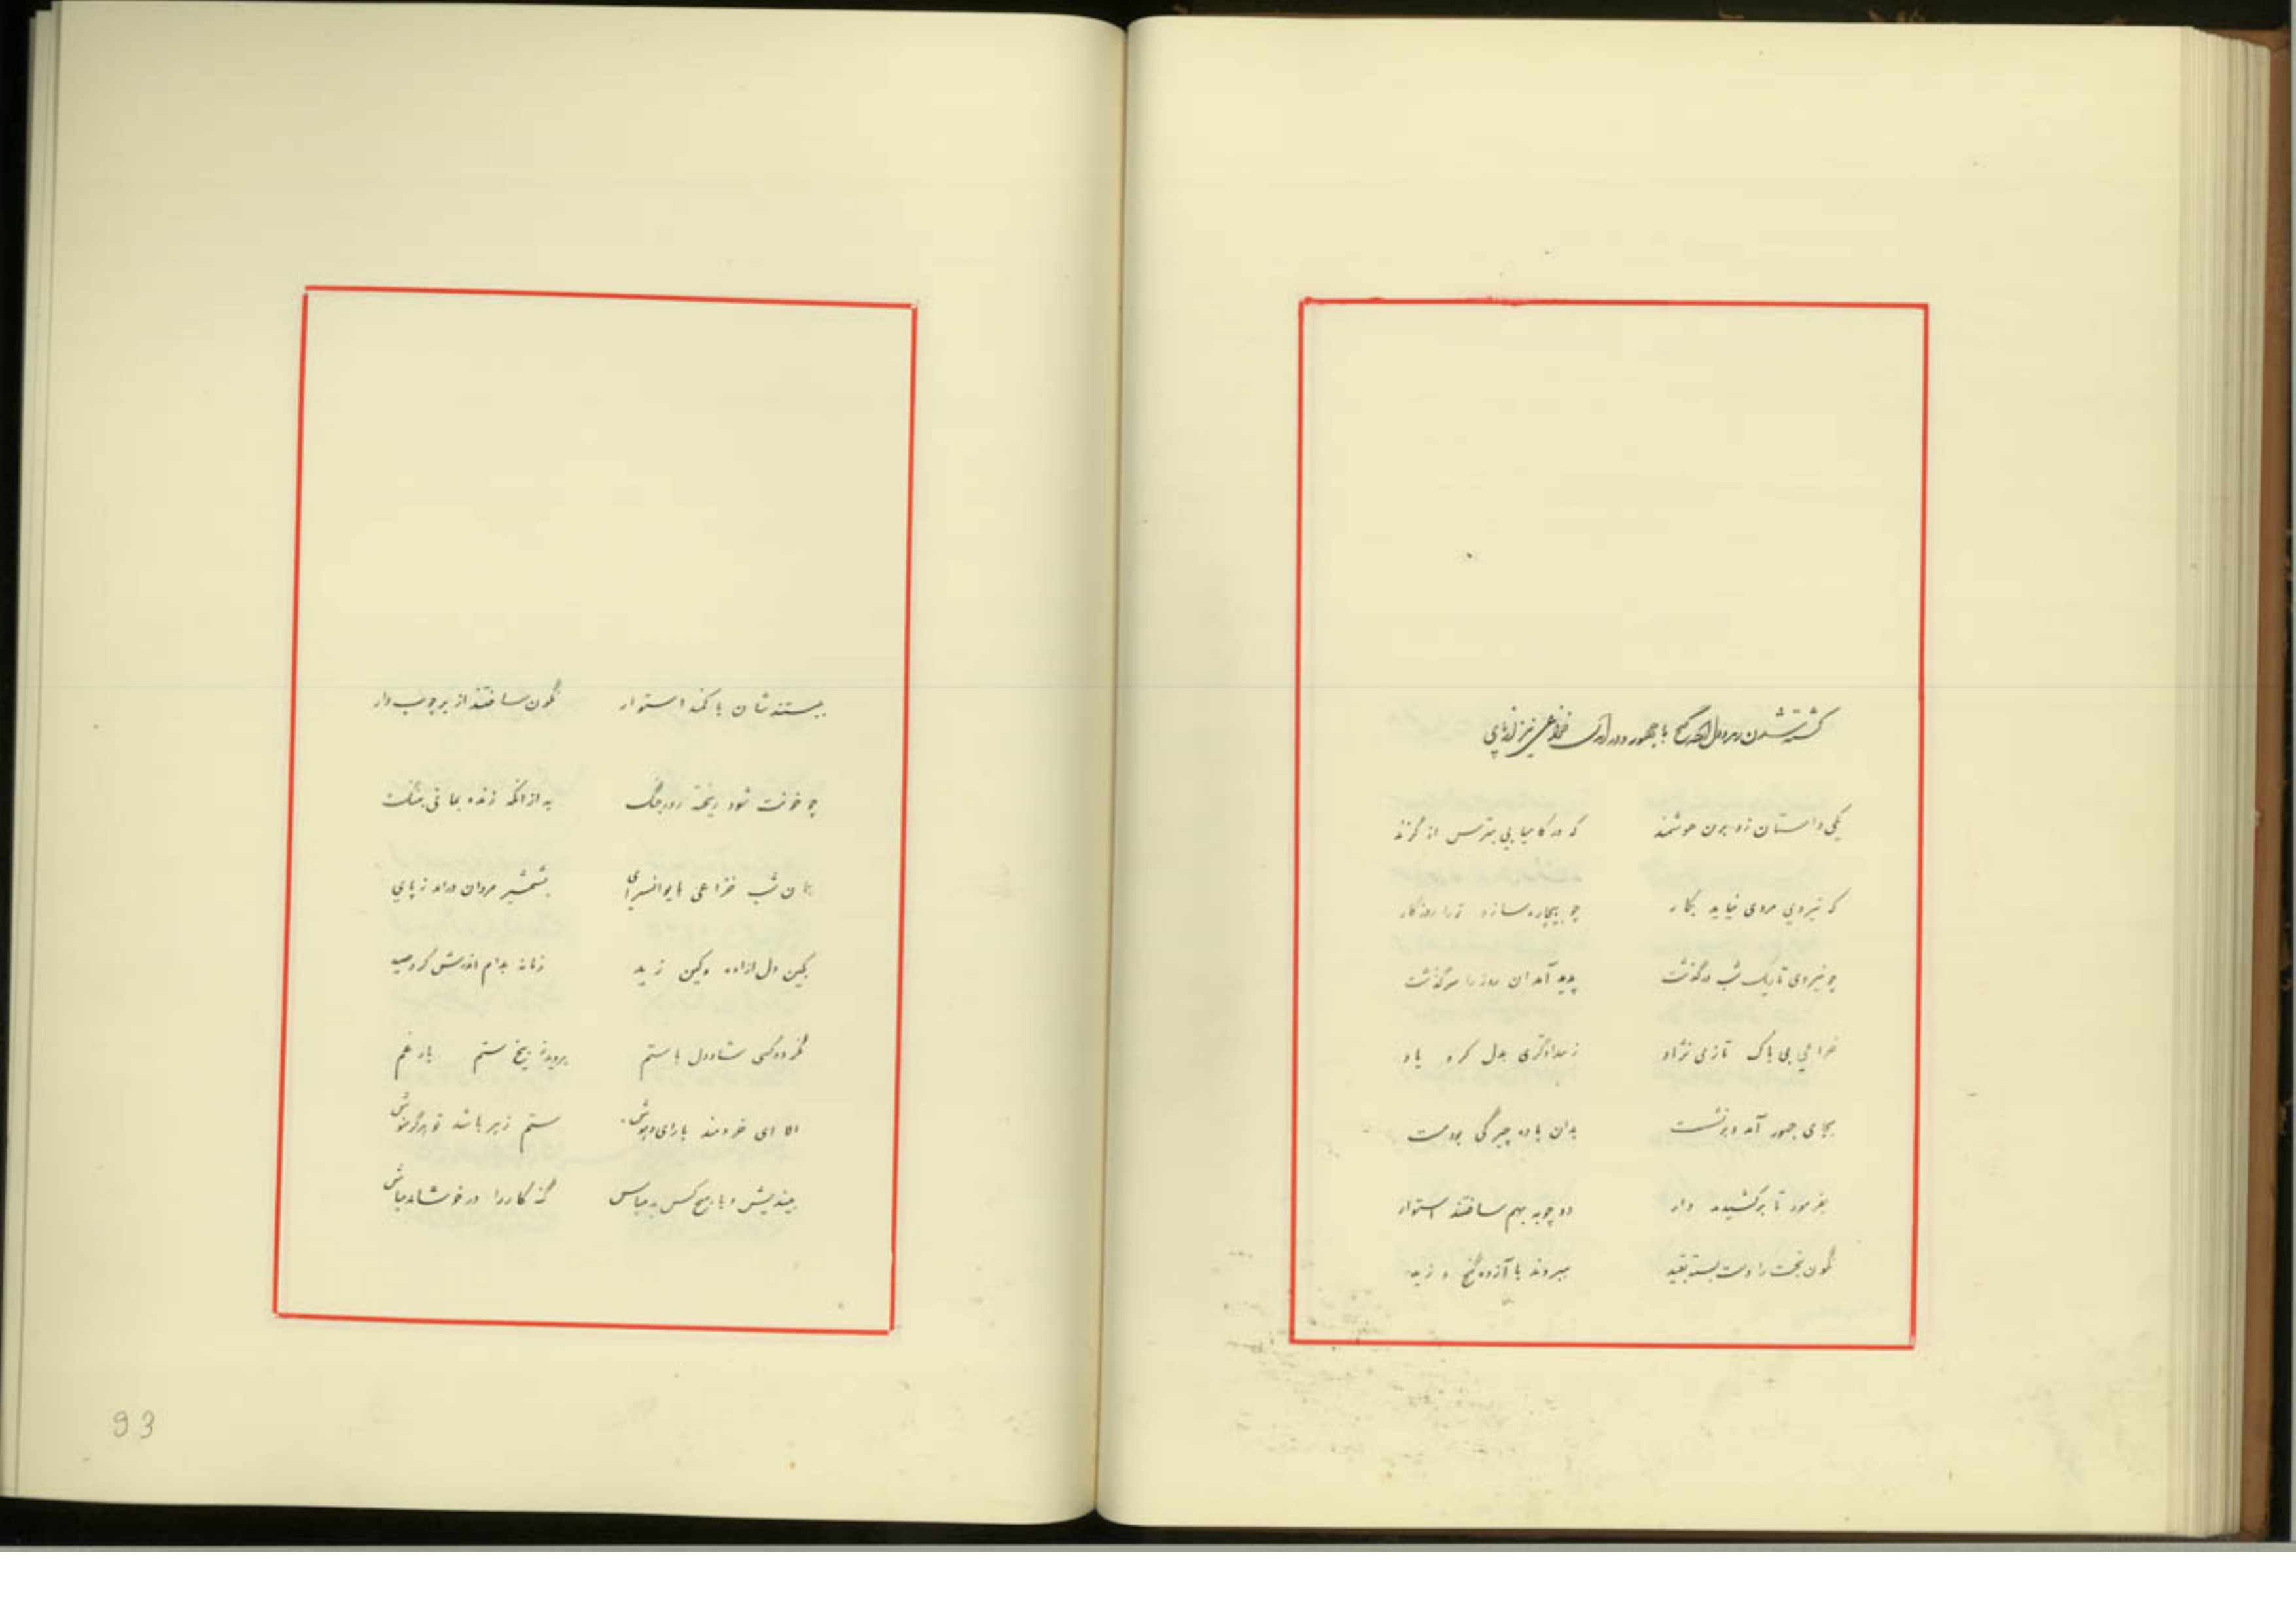 کشته شدن با جمهور خزاعی نیز از پای
یکی داستان زد برین هوشمند که در کامیابی بترس از گزند
که نیروی مردی نیاید بکار چو بیچاره سازد ترا روزگار
چو نیروی تاریک شب درگذشت پدید آمد آن روز را سرگذشت
خزاعی بی باک تازی نژاد ز بیدادگری بدل کرد یاد
بجای جمهور آمد و برنشست بدان باده چیرگی بود مست
بفرمود تا برکشیدند دار دو چوبه بهم ساختند استوار
نگون بخت را دست بسته ببردند با آزاده گنج و
ببستندشان با کمند استوار نگون ساختند از بر چوب دار
چو خونت شود ریخته روز جنگ به از آنکه زنده بمانی به ننگ
همان شب خزاعی بایوانسرای بشمشیر مردان درآمد ز پای
بکین دل آزاده وکین زمانه بدام اندرش کرد صید
نگر دو کسی شاددل با ستم بروید ز بیخ ستم بار غم
الا ای خردمند بارای و هوش ستم زهر باشد تو هرگز منوش
بیندیش و با هیچ کس بد مباش گنه کار را در خوشامد مباش
93